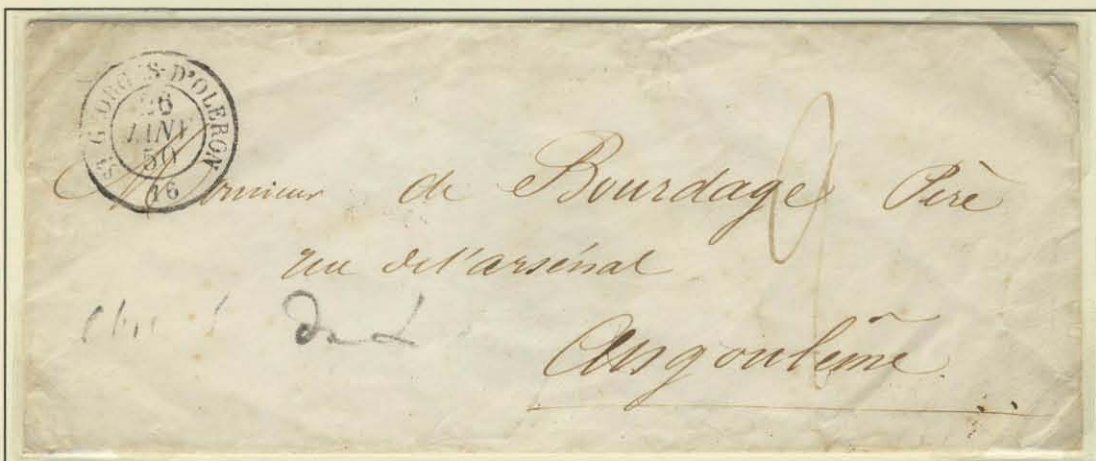 ST GEORGES-D'OLERON
26
JANV
50
16
Monsieur de Bourdage Père
rue de l'arsénal
De L
Angoulême